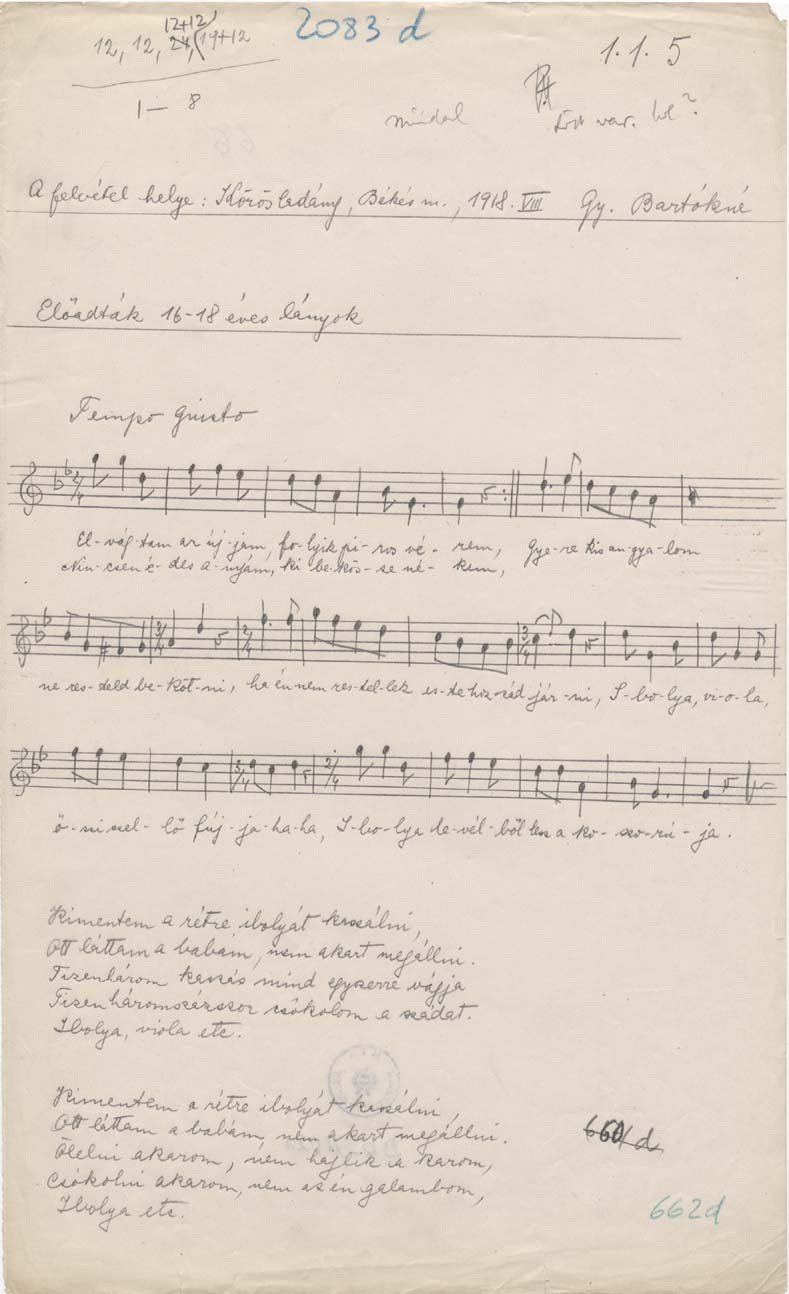 12+12
12, 12, 24, (14+12
2083 d
1.1.5
1 — 8
műdal
var.
A felvétel helye: Körösladány, Békés m., 1918. VIII Gy. Bartókné
Előadták 16-18 éves lányok
Tempo giusto
El-vág-tam az új-jam, fo-lyik pi-ros vé-rem, Gye-re kis an-gya-lom
Nin-csen é-des a-nyám, ki be-kös-se né-kem,
ne res-teld be-köt-ni, ha én nem res-tel-lek es-te hoz-zád jár-ni, I-bo-lya, vi-o-la,
ő-szi szel-lő fúj-ja-ha-ha, I-bo-lya le-vél-ből lesz a ko-szo-rú-ja.
Kimentem a rétre ibolyát kaszálni,
Ott láttam a babám, nem akart megállni.
Tizenhárom kaszás mind egyszerre vágja
Tizenháromszázszor csókolom a szádat.
Ibolya, viola etc.
Kimentem a rétre ibolyát kaszálni,
Ott láttam a babám, nem akart megállni.
Ölelni akarom, nem hajlik a karom,
Csókolni akarom, nem az én galambom,
Ibolya etc.
662d